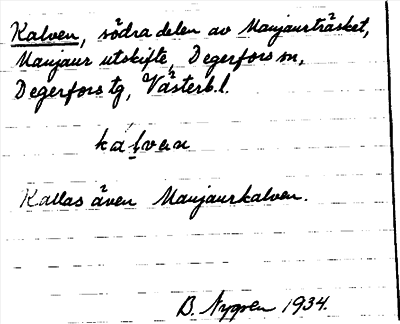 Kalven, södra delen av Manjaurträsket,
Manjaur utskifte, Degerfors sn,
Degerfors tg, Västerb.l.
kalven
Kallas även Manjaurkalven.
B. Nygren 1934.